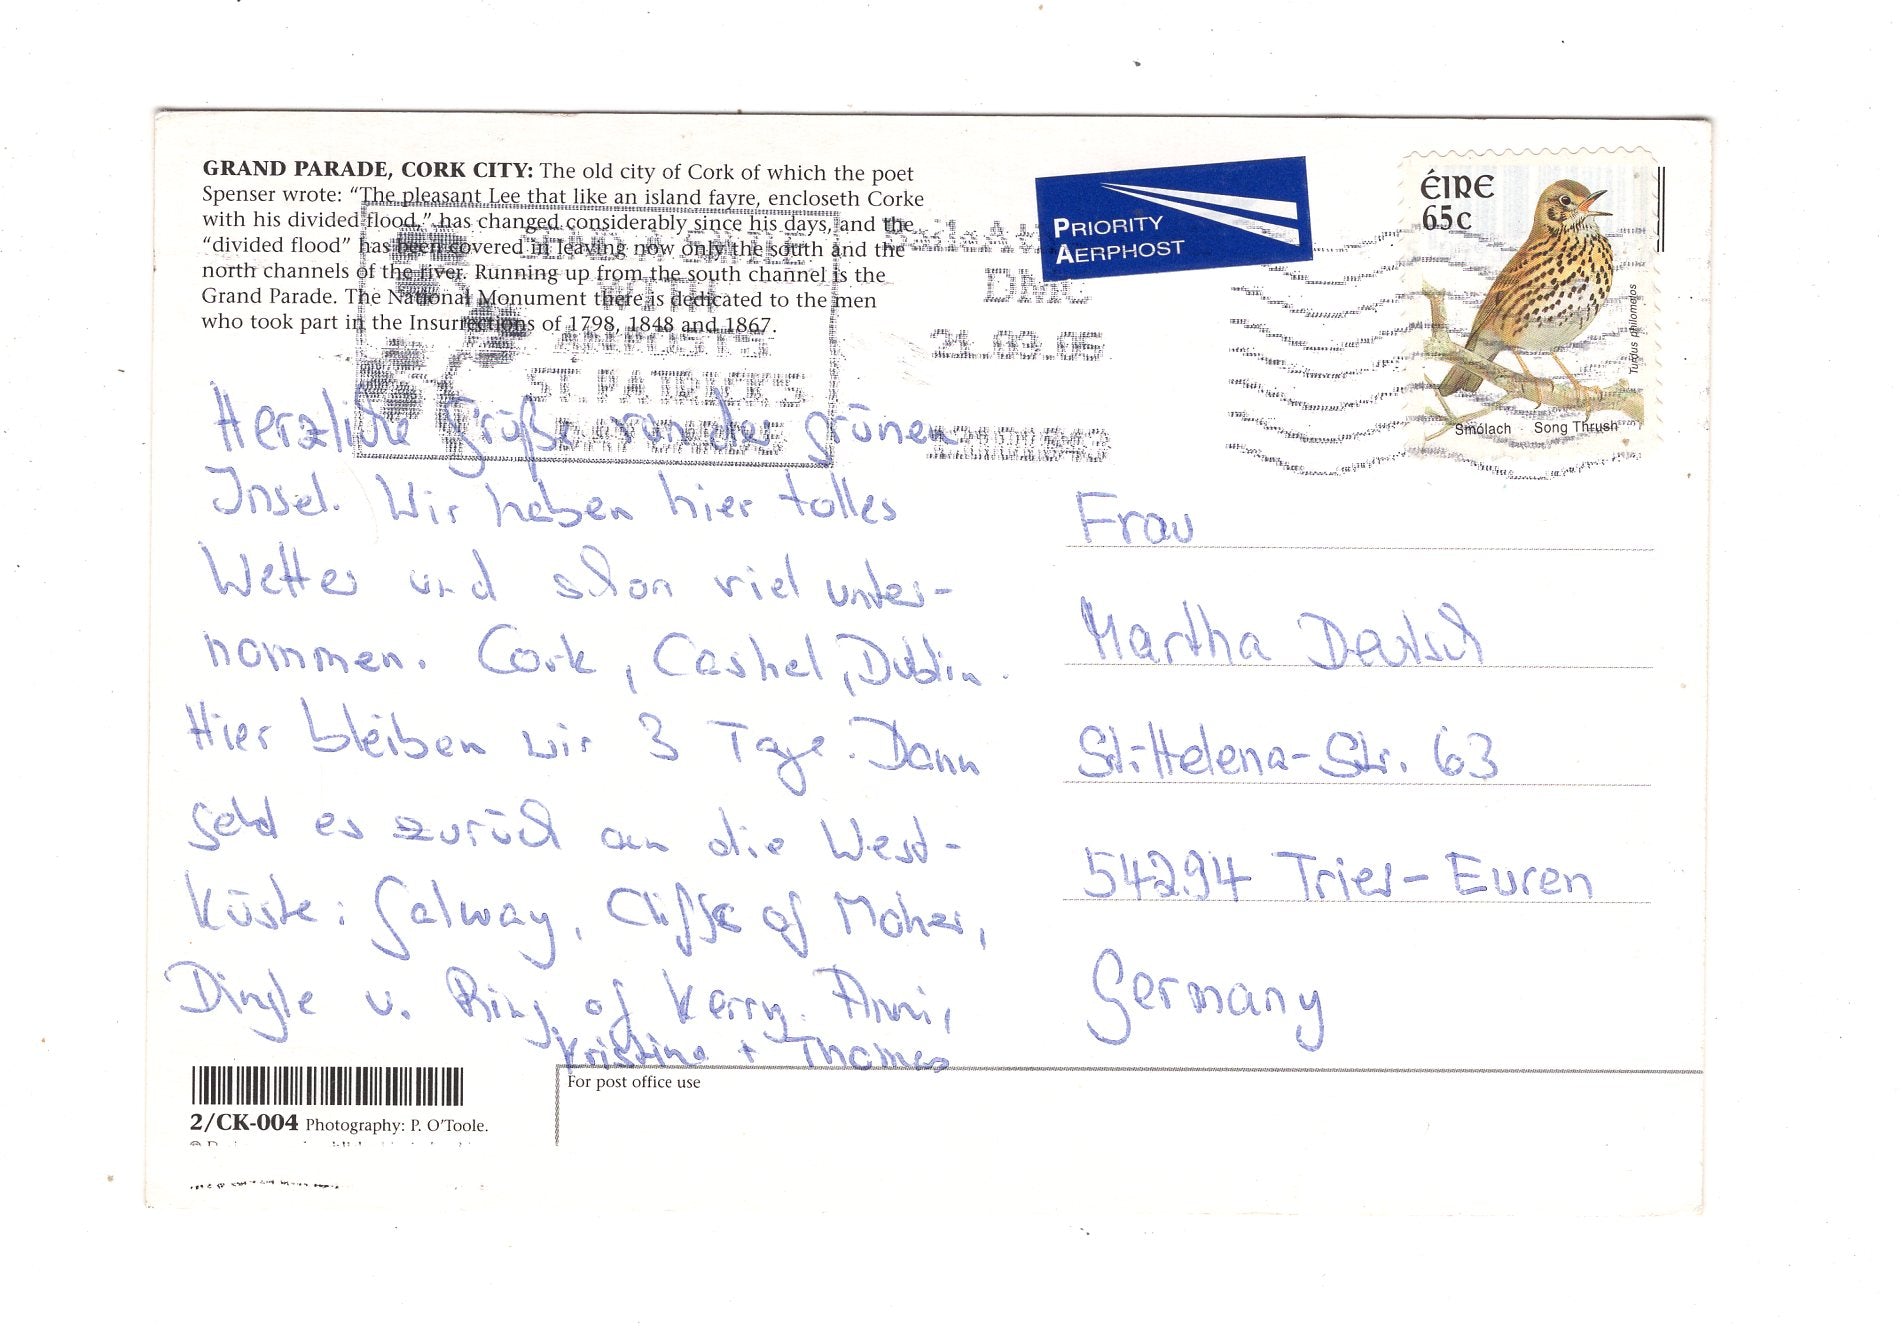 GRAND PARADE, CORK CITY: The old city of Cork of which the poet
Spenser wrote: “The pleasant Lee that like an island fayre, encloseth Corke
with his divided flood,” has changed considerably since his days, and the
“divided flood” has been covered in leaving now only the south and the
north channels of the river. Running up from the south channel is the
Grand Parade. The National Monument there is dedicated to the men
who took part in the Insurrections of 1798, 1848 and 1867.
SEND A SMILE
WITH
ST. PATRICK'S
DMC
21.09.05
PRIORITY
AERPHOST
ÉIRE
65c
Turdus philomelos
Smólach Song Thrush
Herzliche Grüße von der grünen
Insel. Wir haben hier tolles
Wetter und schon viel unter-
nommen. Cork, Cashel, Dublin.
Hier bleiben wir 3 Tage. Dann
geht es zurück an die West-
küste: Galway, Cliffs of Moher,
Dingle u. Ring of Kerry. Anni,
Kristina + Thomas
Frau
Martha Deutsch
St.-Helena-Str. 63
54294 Trier-Euren
Germany
For post office use
2/CK-004 Photography: P. O'Toole.